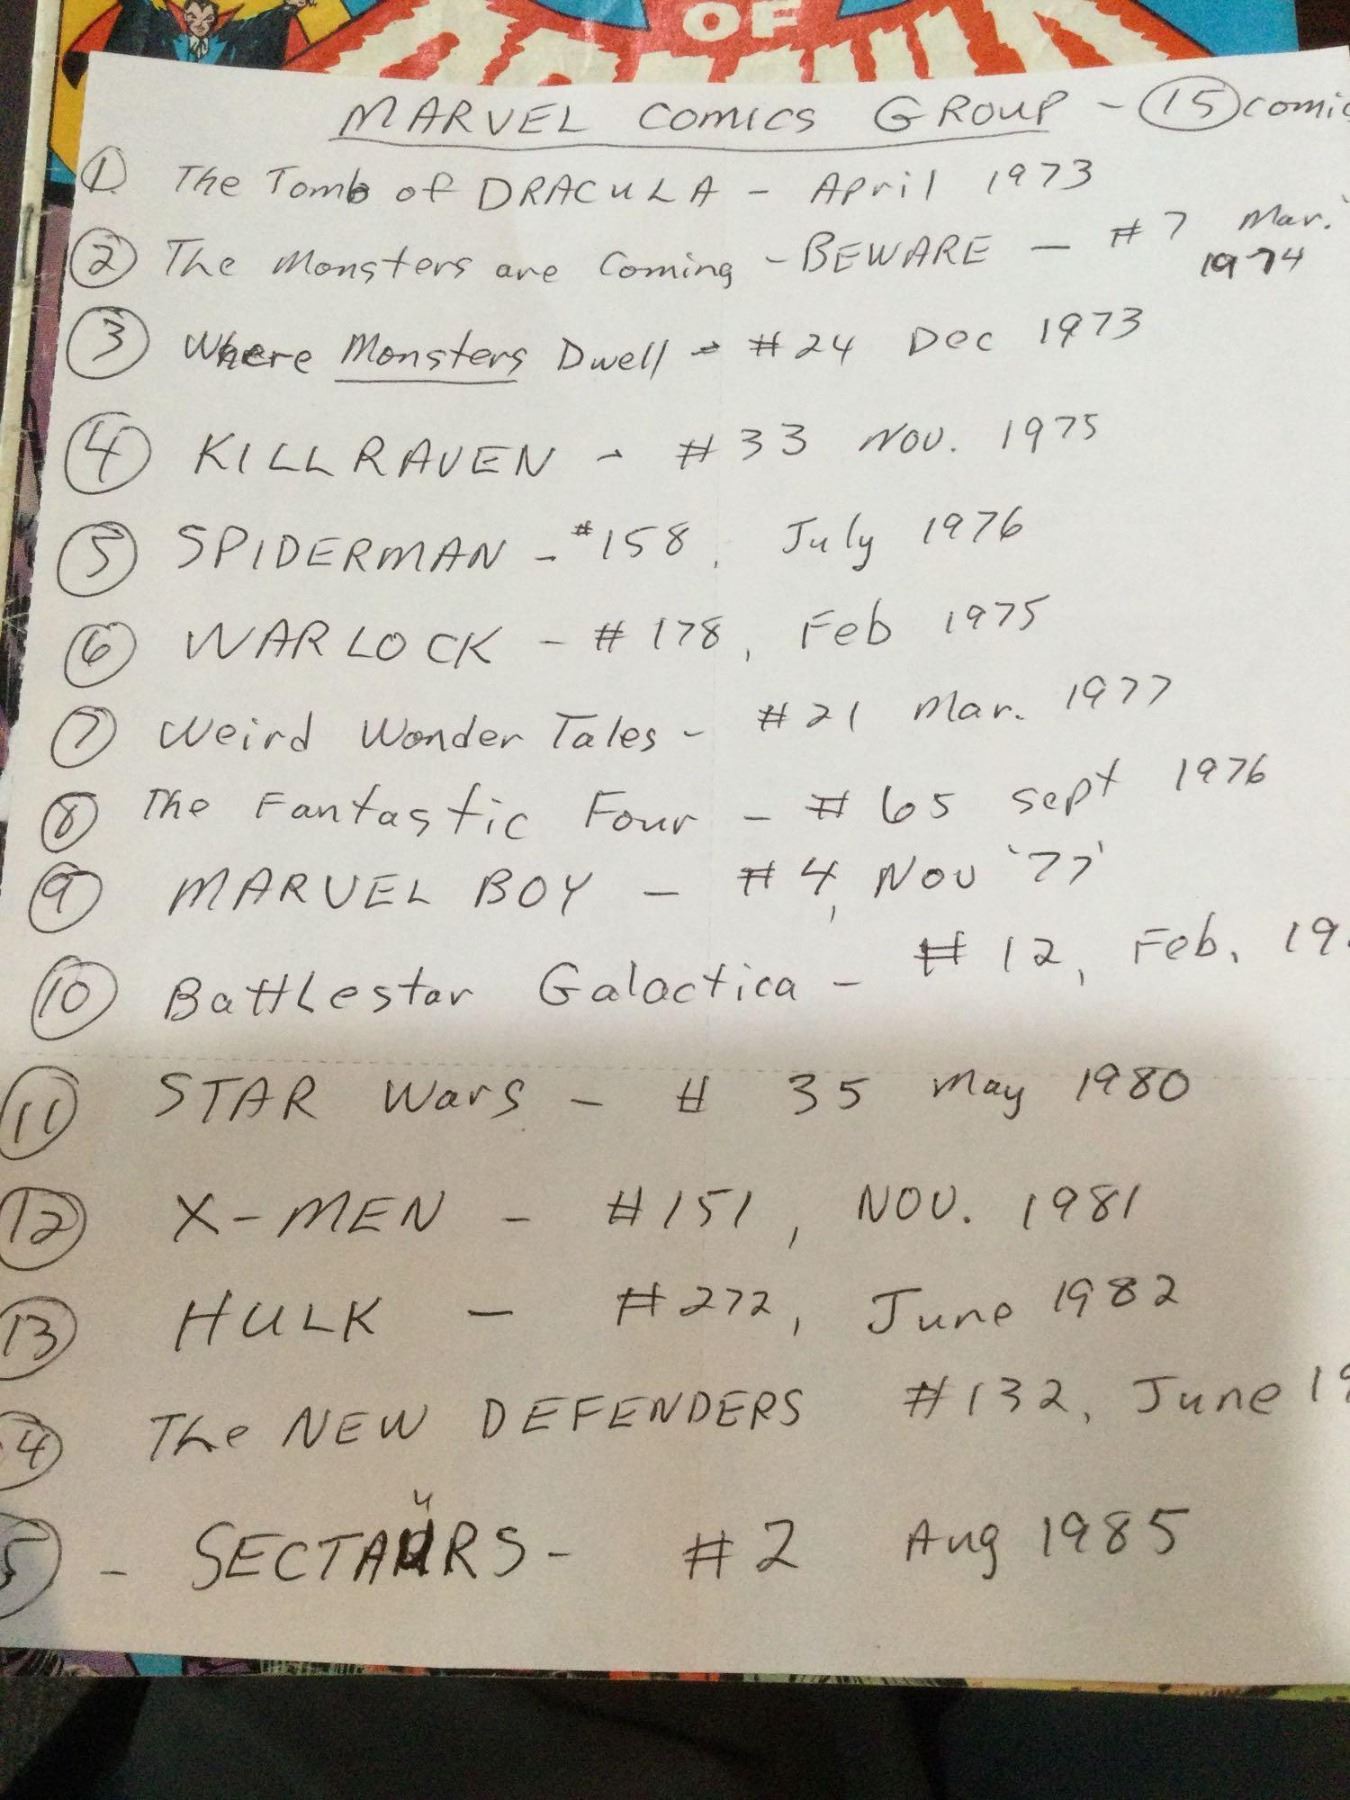 OF
MARVEL COMICS GROUP - 15 comic
1 The Tomb of DRACULA - April 1973
2 The Monsters are Coming - BEWARE - #7 Mar.
1974
3 Where Monsters Dwell - #24 Dec 1973
4 KILLRAVEN - #33 NOV. 1975
5 SPIDERMAN - #158, July 1976
6 WARLOCK - #178, Feb 1975
7 Weird Wonder Tales - #21 Mar. 1977
8 The Fantastic Four - #65 Sept 1976
9 MARVEL BOY - #4, NOV '77'
10 Battlestar Galactica - #12, Feb, 19
11 STAR Wars - # 35 May 1980
12 X-MEN - #151, NOV. 1981
13 HULK - #272, June 1982
4 The NEW DEFENDERS #132, June 19
5 - SECTAURS - #2 Aug 1985